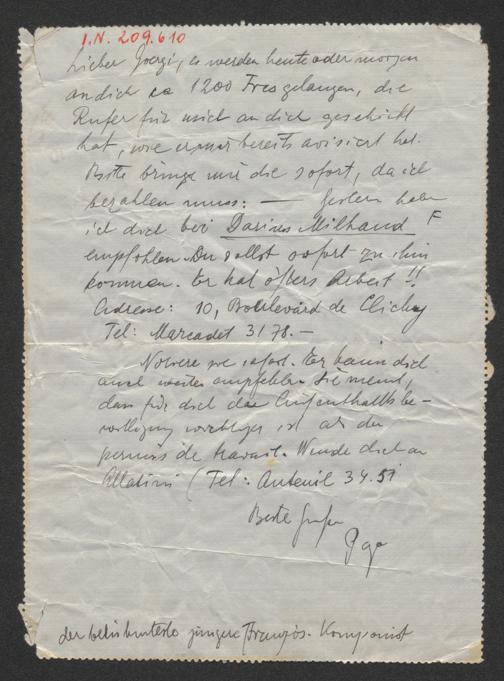 I.N. 209.610
Lieber Georgi, es werden heute oder morgen
an dich ca 1200 Frcs gelangen, die
Rufer für mich an dich geschickt
hat, wie er mir bereits avisiert hat.
Bitte bringe mir die sofort, da ich
bezahlen muss: — Gestern habe
ich dich bei Darius Milhaud F
empfohlen. Du sollst sofort zu ihm
kommen. Er hat öfters Arbeit !!
Adresse: 10, Boulevard de Clichy
Tel: Marcadet 3178.—
sofort. Er kann dich
auch weiter empfehlen. Sie meint,
dass für dich die Aufenthaltsbe-
willigung wichtiger ist als der
permis de travail. Wende dich an
Allatini (Tel: Auteuil 34.51
Beste Grüsse
der bekannteste jüngere französ. Komponist